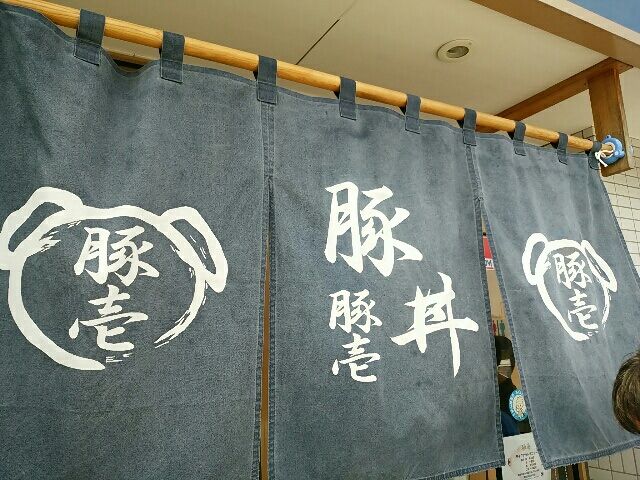 豚
壱
豚丼
豚壱
豚
壱